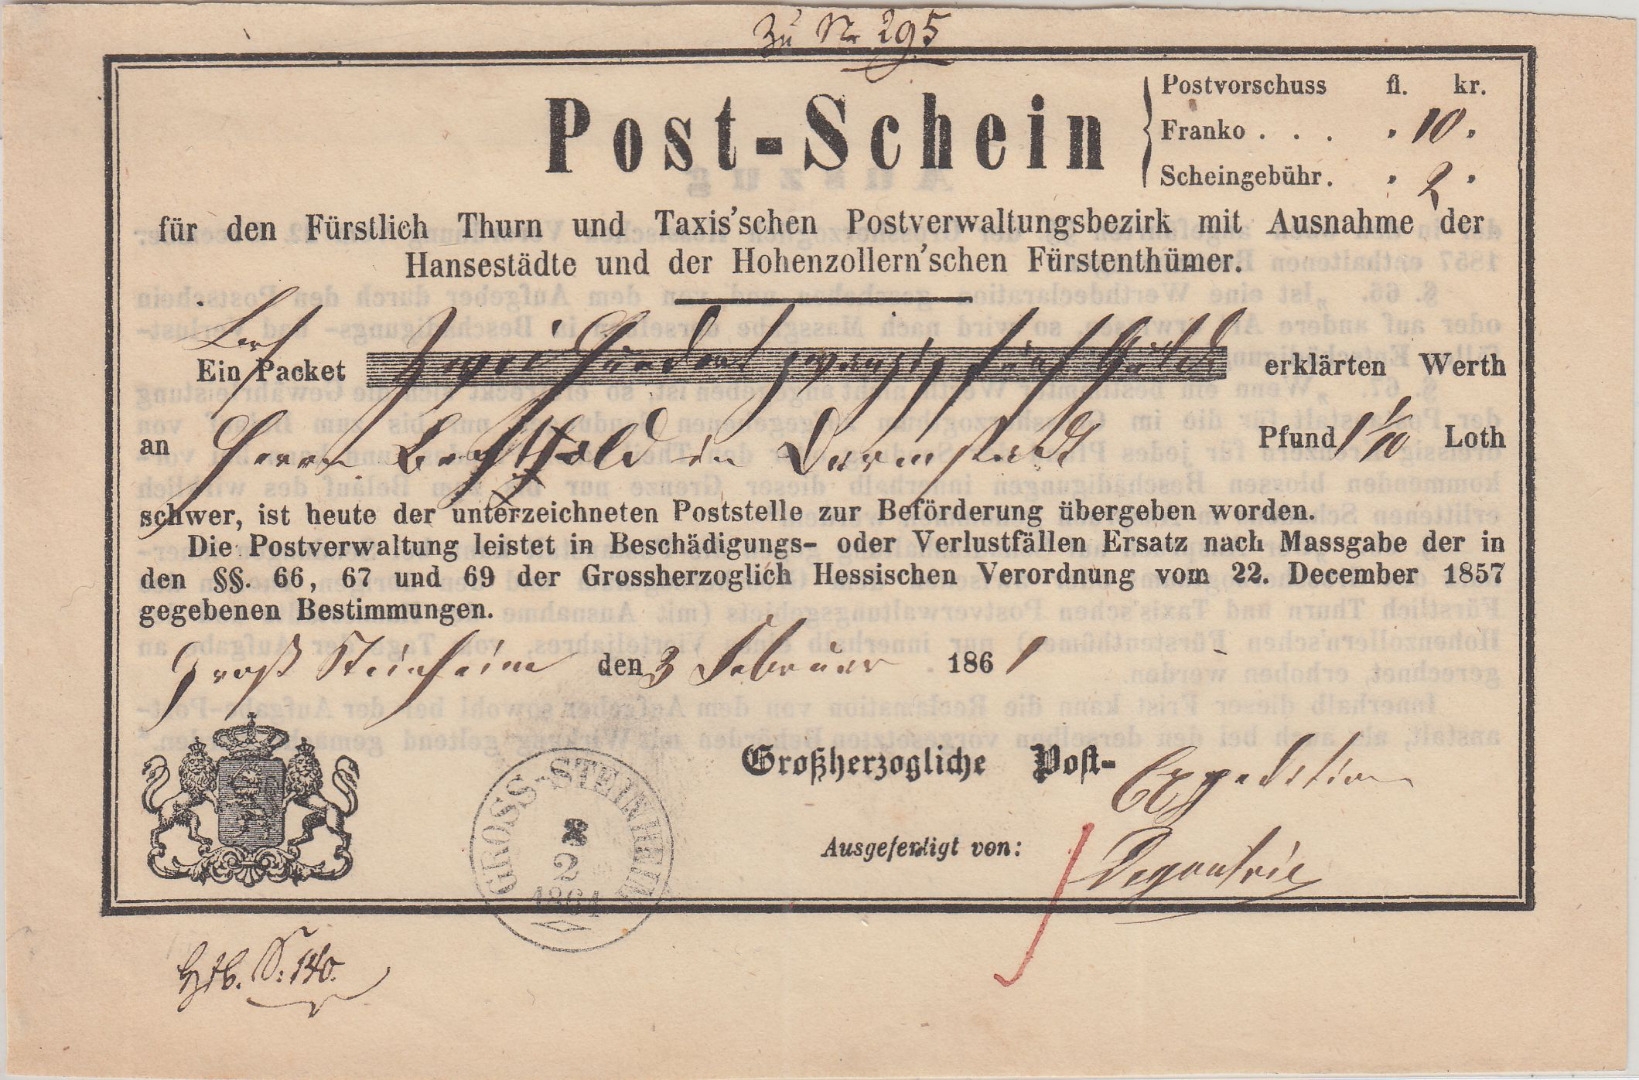 Zu Nr 295
Post-Schein
Postvorschuss fl. kr.
Franko . . . „ 10 „
Scheingebühr. „ 2 „
für den Fürstlich Thurn und Taxis'schen Postverwaltungsbezirk mit Ausnahme der
Hansestädte und der Hohenzollern'schen Fürstenthümer.
Ein Packet Zwei Hundert zwanzig fünf Gulden erklärten Werth
an Herrn Bechthold in Darmstadt Pfund 1 1/10 Loth
schwer, ist heute der unterzeichneten Poststelle zur Beförderung übergeben worden.
Die Postverwaltung leistet in Beschädigungs- oder Verlustfällen Ersatz nach Massgabe der in
den §§. 66, 67 und 69 der Grossherzoglich Hessischen Verordnung vom 22. December 1857
gegebenen Bestimmungen.
Groß Steinheim den 3 Februar 1861
Großherzogliche Post-Expedition
Ausgefertigt von:
GROSS-STEINHEIM
3
2
1861
S. 140.